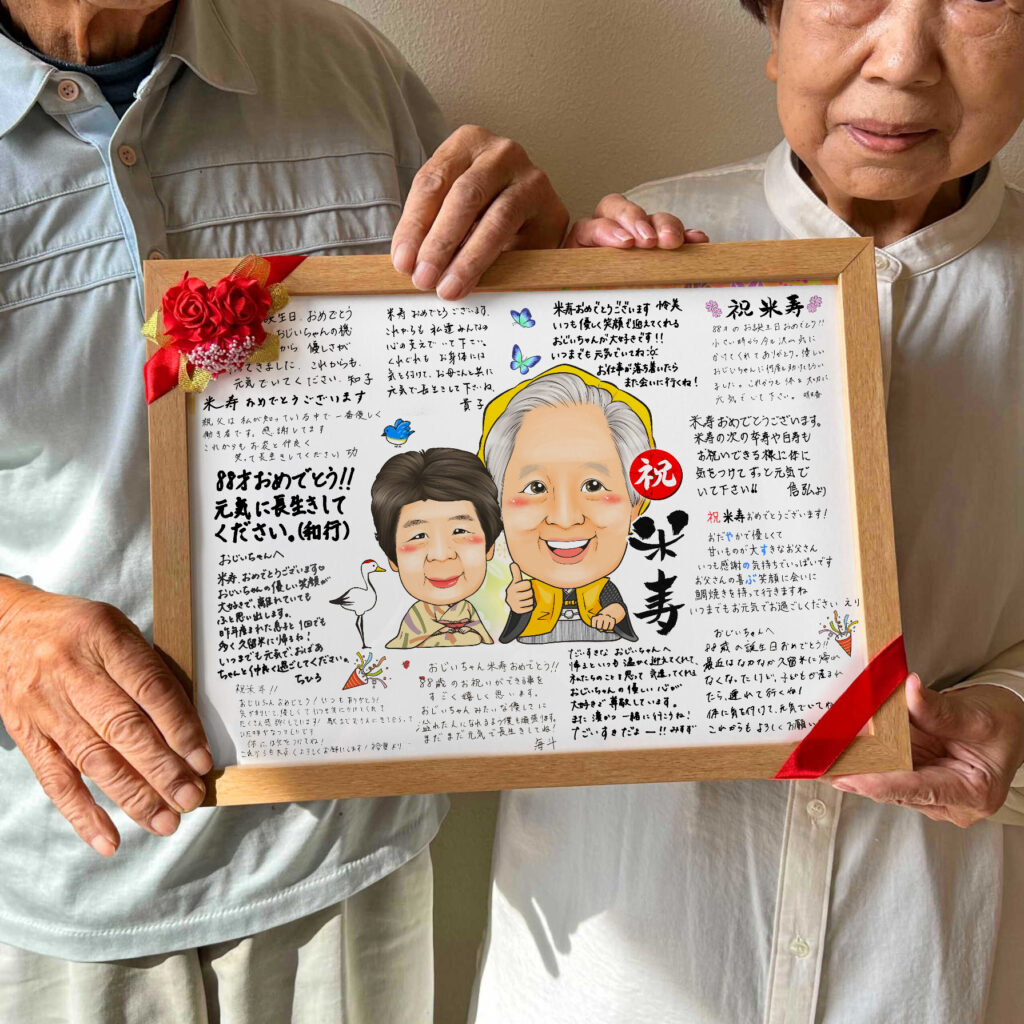 誕生日、おめでとう
おじいちゃんの機
から 優しさが
てきました。これからも、
元気でいてください。知子
米寿おめでとうございます
祖父は私が知っている中で一番優しく
働き者です。感謝してます
これからもお袋と仲良く
笑って長生きしてください 功
88才おめでとう!!
元気に長生きして
ください。(和行)
おじいちゃんへ
米寿、おめでとうございます♡
おじいちゃんの優しい笑顔が
大好きで、離れていても
ふと思い出します。
昨年産まれた息子と1回でも
多く久留米に帰るね!
いつまでも元気で、おばあ
ちゃんと仲良く過ごしてください。
ちひろ
米寿おめでとうございます。
これからも私達みんなの
心の支えでいて下さい。
くれぐれもお身体には
気を付けて、お母さんと共に
元気で長生きして下さいね。
貴子
米寿おめでとうございます 怜美
いつも優しく笑顔で迎えてくれる
おじいちゃんが大好きです!!
いつまでも元気でいてね
お仕事が落ち着いたら
また会いに行くね!
祝米寿
88才のお誕生日おめでとう!!
小さい時から今も
かけてくれてありがとう。優しい
おじいちゃんに何度も助けてもらい
ました。これからも体を大切に
元気でいて下さい。
米寿おめでとうございます。
米寿の次の卒寿や白寿も
お祝いできる様に体に
気をつけてずっと元気で
いて下さい!! 信弘より
祝米寿おめでとうございます!
おだやかで優しくて
甘いものが大すきなお父さん
いつも感謝の気持ちでいっぱいです
お父さんの喜ぶ笑顔に会いに
鯛焼きを持って行きますね
いつまでもお元気でお過ごしください えり
祝
米寿
おじいちゃん米寿おめでとう!!
88歳のお祝いができる事を
すごく嬉しく思います。
おじいちゃんみたいな優しさに
溢れた人になれるよう僕も頑張ります。
まだまだ元気で長生きしてね!
海斗
だいすきな おじいちゃんへ
帰るといつも温かく迎えてくれて、
私たちのことを思って支えてくれる
おじいちゃんの優しい心が
大好きで尊敬しています。
また 一緒に行こうね!
だいすきだよー!! みすず
おじいちゃんへ
88歳の誕生日おめでとう!!
最近はなかなか久留米に帰れ
なくなったけど、子どもが産まれ
たら、連れて行くね!
体に気を付けて、元気でいてね
これからもよろしくお願い
祝米寿!!
おじいちゃんおめでとう!いつもありがとう!